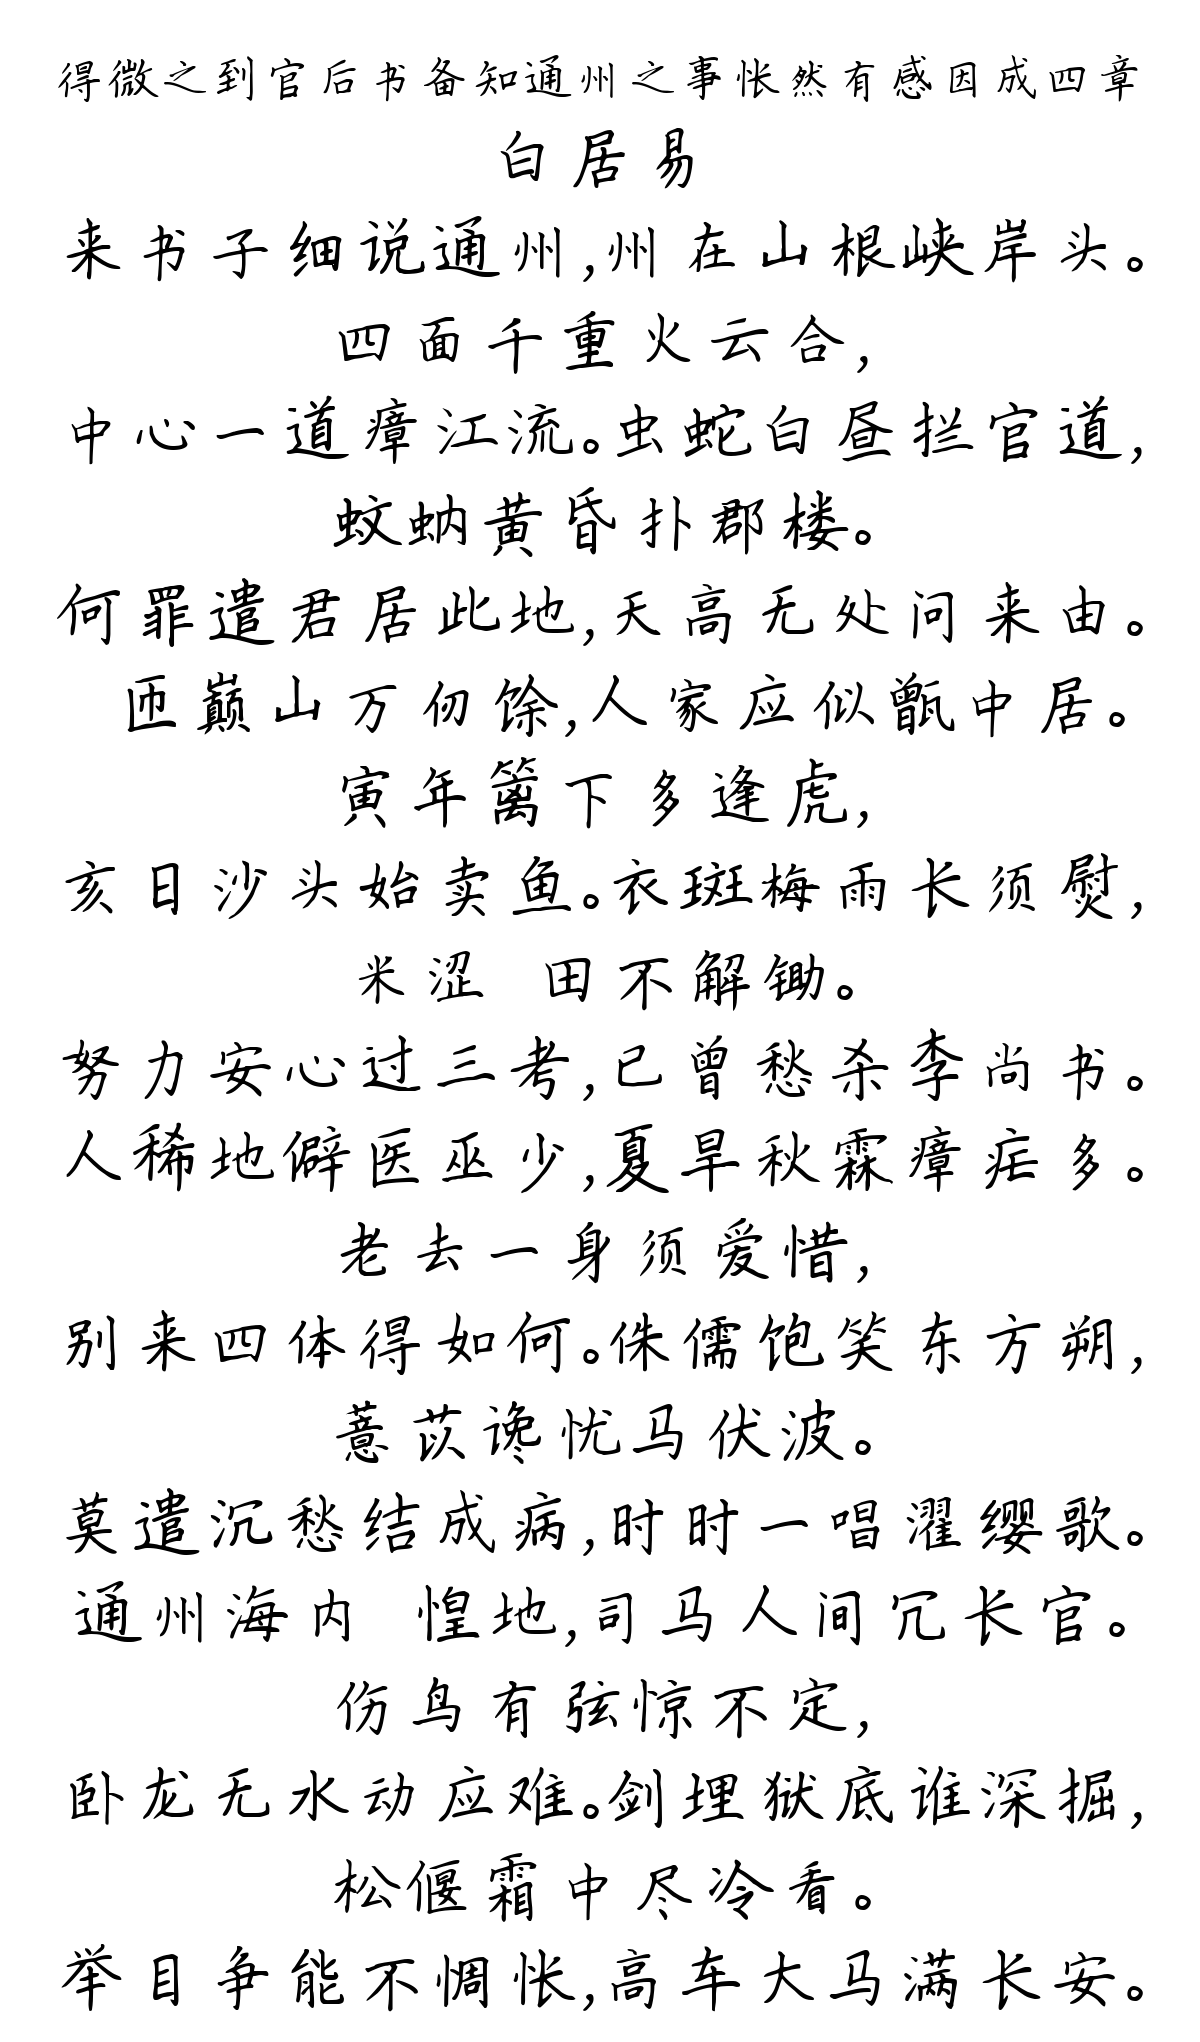 得微之到官后书备知通州之事怅然有感因成四章
白居易
来书子细说通州,州在山根峡岸头。
四面千重火云合,
中心一道瘴江流。虫蛇白昼拦官道,
蚊蚋黄昏扑郡楼。
何罪遣君居此地,天高无处问来由。
匝巅山万仞馀,人家应似甑中居。
寅年篱下多逢虎,
亥日沙头始卖鱼。衣斑梅雨长须熨,
米涩 田不解锄。
努力安心过三考,已曾愁杀李尚书。
人稀地僻医巫少,夏旱秋霖瘴疟多。
老去一身须爱惜,
别来四体得如何。侏儒饱笑东方朔,
薏苡谗忧马伏波。
莫遣沉愁结成病,时时一唱濯缨歌。
通州海内 惶地,司马人间冗长官。
伤鸟有弦惊不定,
卧龙无水动应难。剑埋狱底谁深掘,
松偃霜中尽冷看。
举目争能不惆怅,高车大马满长安。